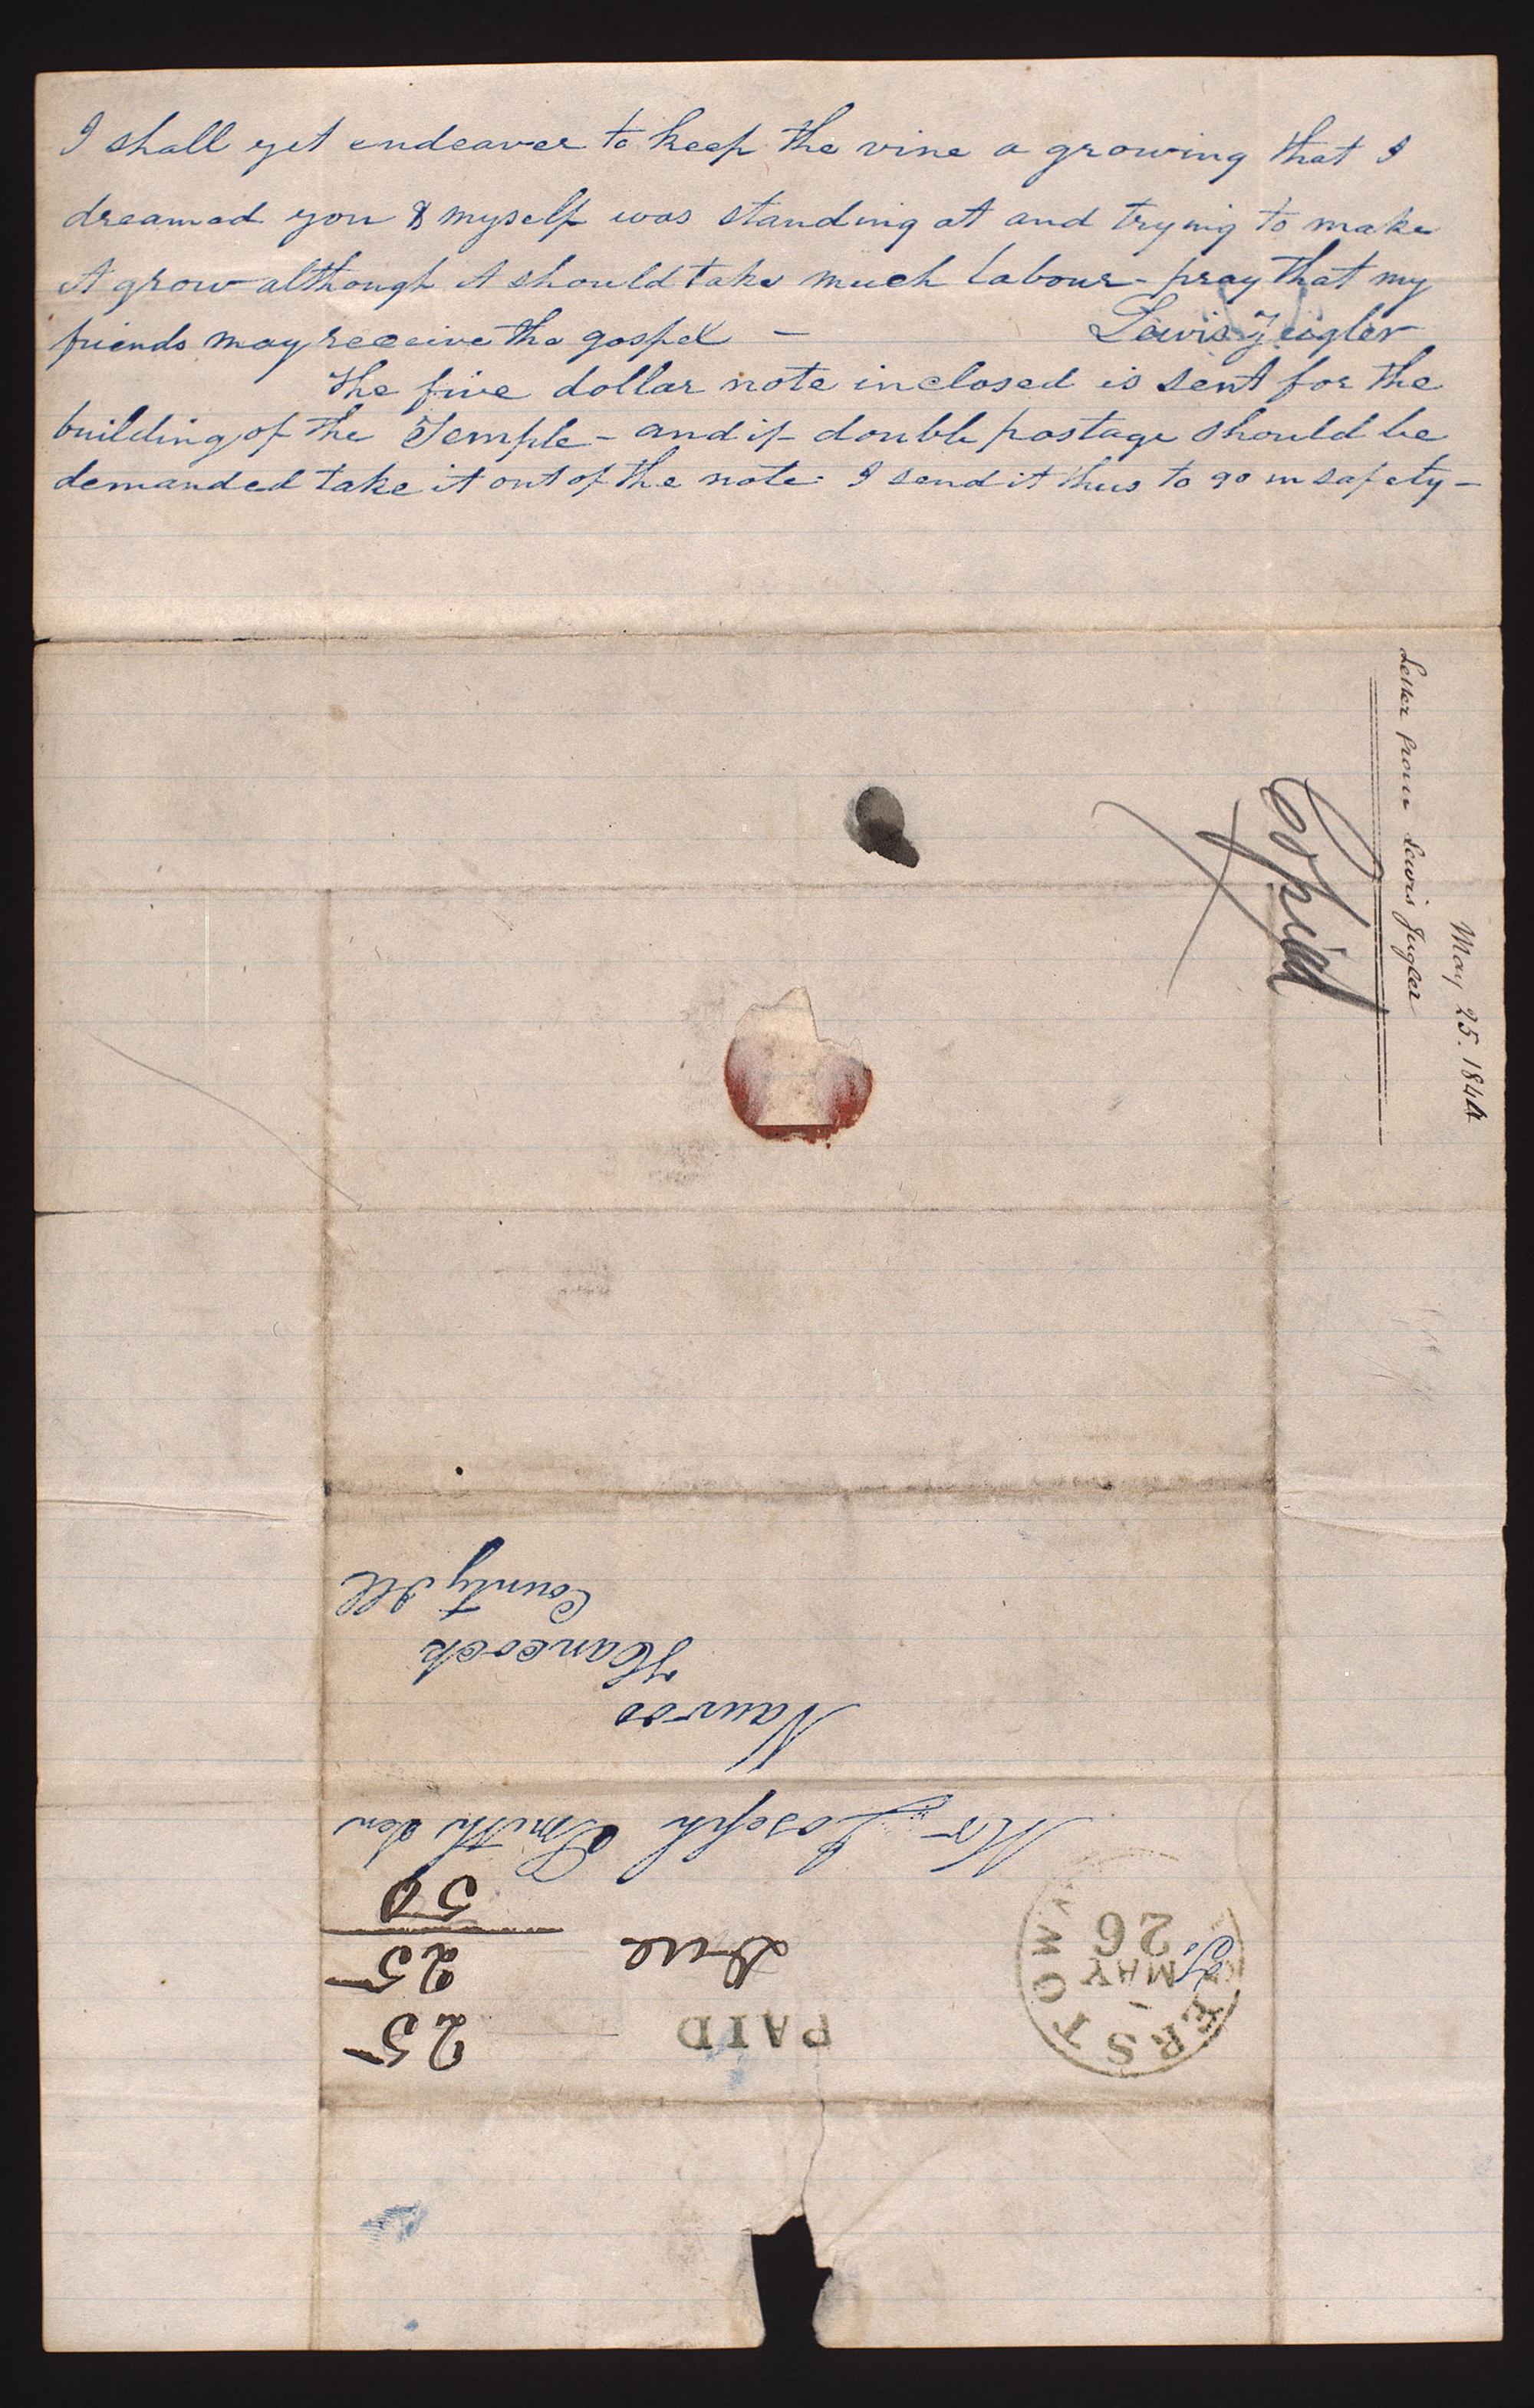 I shall yet endeaver to keep the vine a growing that I
dreamed you & myself was standing at and trying to make
it grow although it should take much labour - pray that my
friends may receive the gospel -
Lewis Zeigler
The five dollar note inclosed is sent for the
building of the Temple - and if double postage should be
demanded take it out of the note. I send it thus to go in safety -
May 25. 1844
Letter from Lewis Zugler
Copied
ERSTOW
MAY
26
PAID
Due
25
25
50
Mr Joseph Smith Sen
Nauvoo
Hancock
County Ill